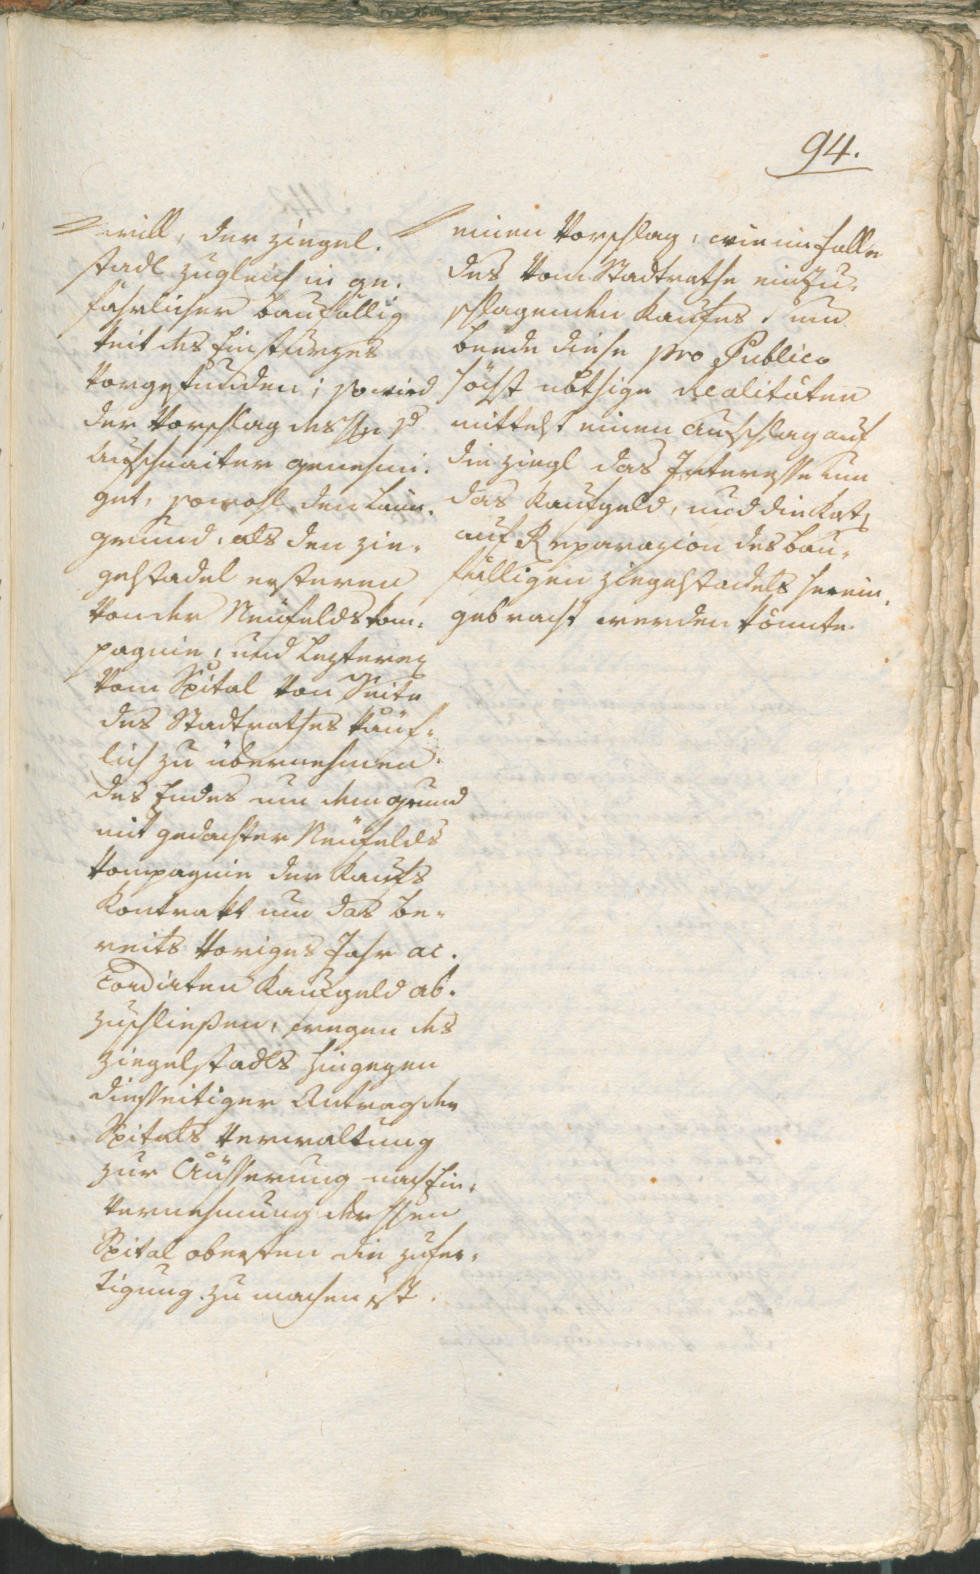 94.
will, der Ziegel-
stadl zugleich in ge-
fährlicher Baufällig
keit des Einsturzes
vorgefunden; so wird
der Vorschlag des H:
Aufschnaiter genehmi-
get, sowohl den Laim-
grund, als den Zie-
gelstadel ersteren
von der Neufeldskom-
pagnie, und lezteren
vom Spital von Seite
des Stadtrathes käuf-
lich zu übernehmen.
des Endes um dem Grund
mit gedachter Neufelds
Kompagnie der Kaufs
Kontrakt um das be-
reits voriges Jahr ac-
cordirten Kaufgeld ab-
zuschließen, wegen des
Ziegelstadls hingegen
diesseitiger Antrag der
Spitals Verwaltung
zur Äusserung nach Ein-
vernehmung der Herren
Spital obersten die zufer-
tigung zu machen ist.
einen Vorschlag, wie im Falle
des vom Stadtrathe einzu-
schlagenden Kaufes, um
beede diese pro Publico
höchst nöthige Realitäten
mittelst einen Aufschlag auf
die Ziegl das Interesse um
das Kaufgeld, und die Kost
auf Reparazion des bau-
fälligen Ziegelstadels herein
gebracht werden könnte.